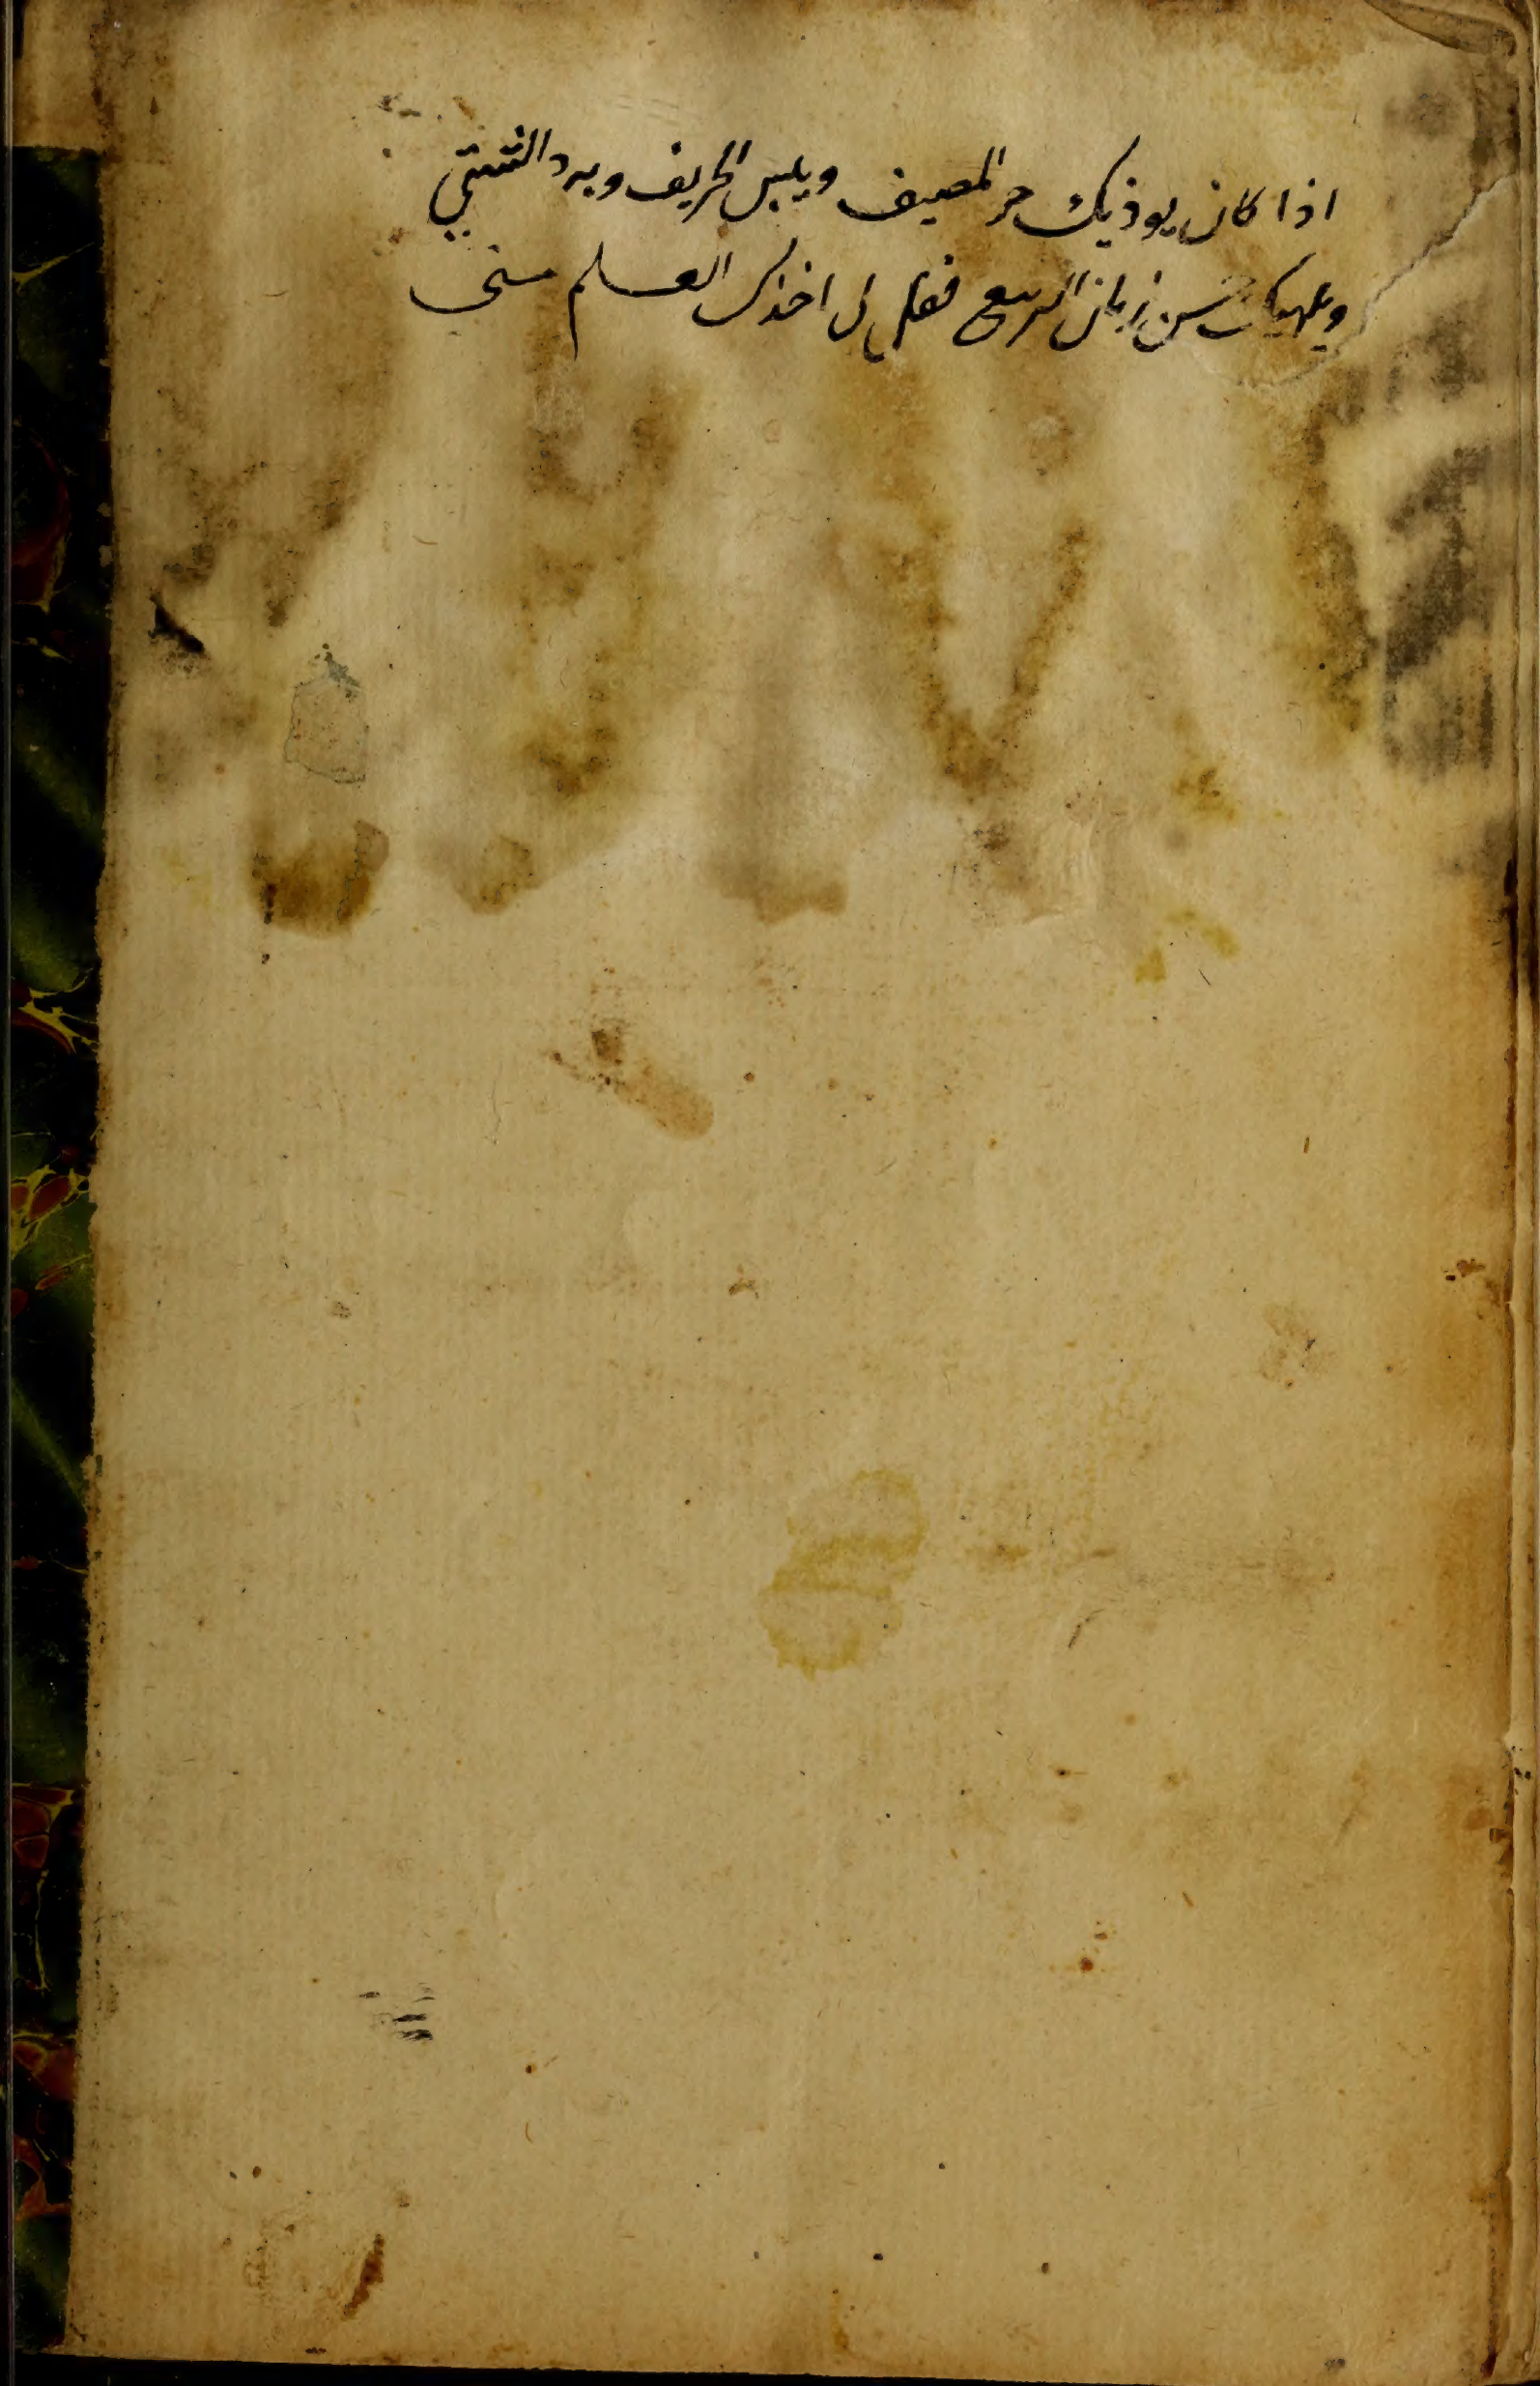 اذا كان يوذيك حر المصيف ويبس الخريف وبرد الشتي
ويلهيك حسن زمان الربيع فقل لي اخذك العلم متى